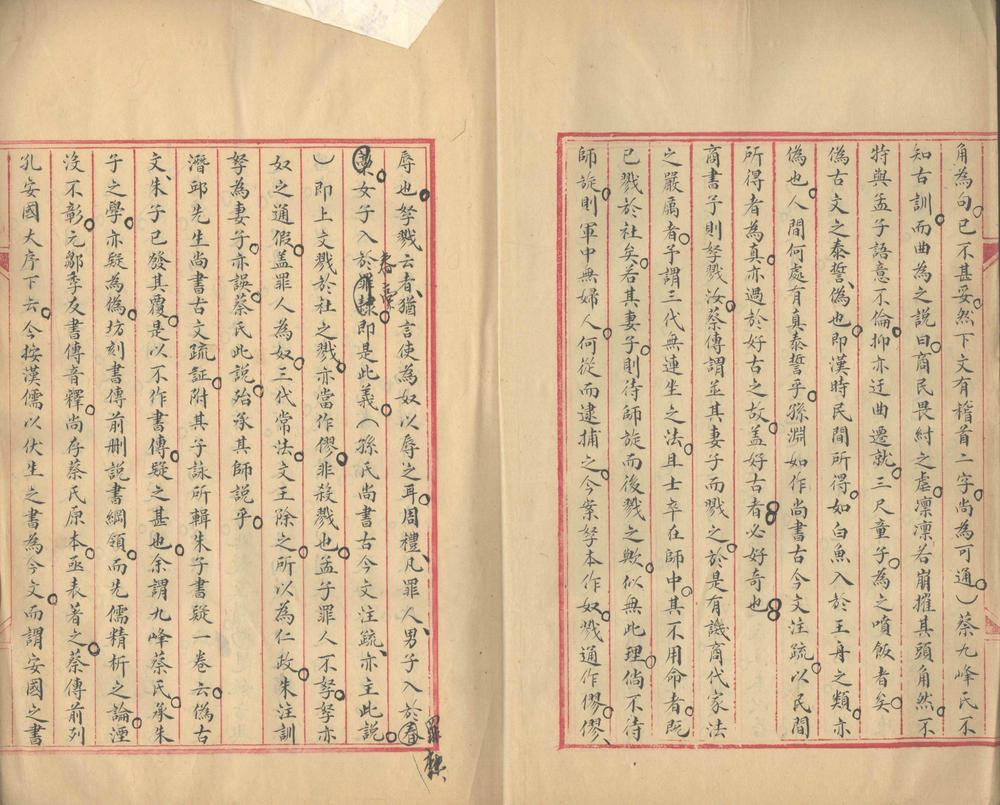 角為句已不甚妥然下文有稽首二字尚為可通）蔡九峰氏不
知古訓而曲為之說曰商民畏紂之虐凜凜若崩摧其頭角然不
特與孟子語意不倫抑亦迂曲遷就三尺童子為之噴飯者矣
偽古文之泰誓偽也即漢時民間所得如白魚入於王舟之類亦
偽也人間何處有真泰誓乎孫淵如作尚書古今文注疏以民間
所得者為真亦過於好古之故蓋好古者必好奇也
商書予則孥戮汝蔡傳謂並其妻子而戮之於是有譏商代家法
之嚴厲者予謂三代無連坐之法且士卒在師中其不用命者既
已戮於社矣若其妻子則待師旋而後戮之歟似無此理倘不待
師旋則軍中無婦人何從而逮捕之今案孥本作奴戮通作僇僇
辱也孥戮云者猶言使為奴以辱之耳周禮凡罪人男子入於舂
罪隸
藁女子入於罪隸即是此義（孫氏尚書古今文注疏亦主此說
舂藁
）即上文戮於社之戮亦當作僇非殺戮也孟子罪人不孥孥亦
奴之通假蓋罪人為奴三代常法文王除之所以為仁政朱注訓
孥為妻子亦誤蔡氏此說殆承其師說乎
潛邱先生尚書古文疏証附其子詠所輯朱子書疑一卷云偽古
文朱子已發其覆是以不作書傳疑之甚也余謂九峰蔡氏承朱
子之學亦疑為偽坊刻書傳前刪說書綱領而先儒精析之論湮
沒不彰元鄒季友書傳音釋尚存蔡氏原本亟表著之蔡傳前列
孔安國大序下云今按漢儒以伏生之書為今文而謂安國之書